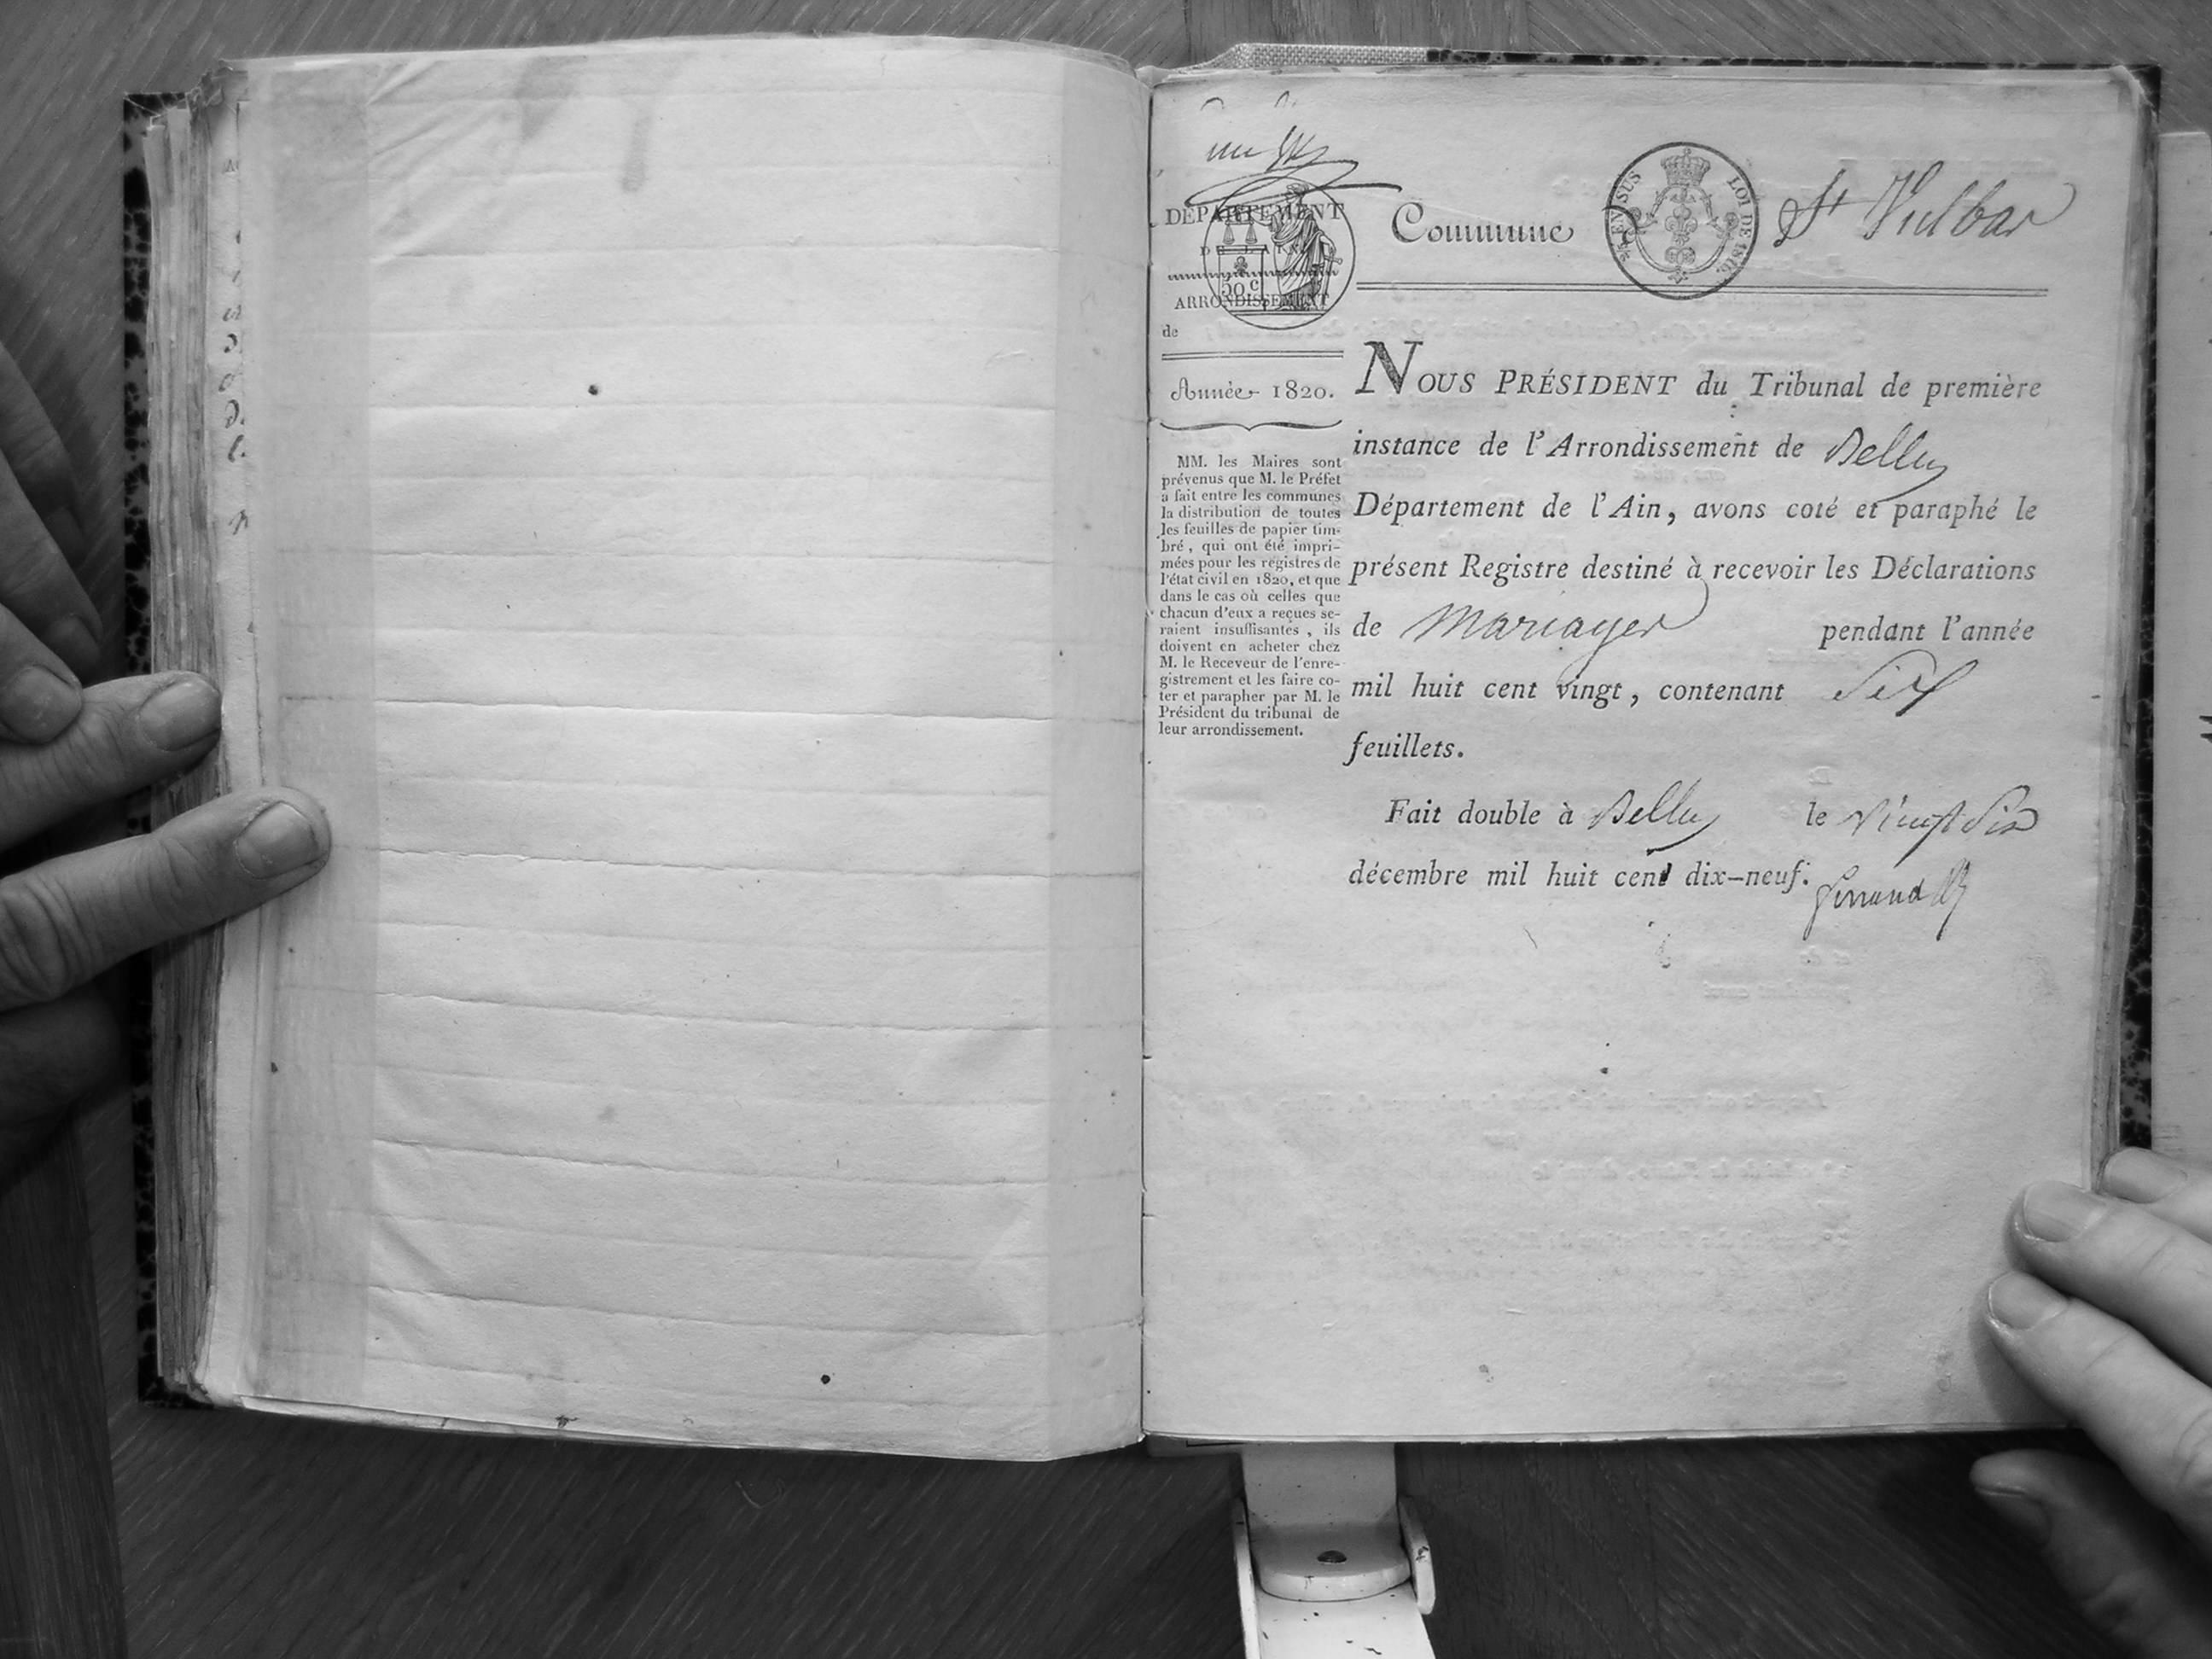 DÉPARTEMENT
DE L'AIN.
ARRONDISSEMENT
de
50 c
Année 1820.
MM. les Maires sont
prévenus que M. le Préfet
a fait entre les communes
la distribution de toutes
les feuilles de papier tim-
bré, qui ont été impri-
mées pour les registres de
l'état civil en 1820, et que
dans le cas où celles que
chacun d'eux a reçues se-
raient insuffisantes, ils
doivent en acheter chez
M. le Receveur de l'enre-
gistrement et les faire co-
ter et parapher par M. le
Président du tribunal de
leur arrondissement.
Commune St Vulbas
EN SUS LOI DE 1816.
NOUS PRÉSIDENT du Tribunal de première
instance de l'Arrondissement de Belley
Département de l'Ain, avons coté et paraphé le
présent Registre destiné à recevoir les Déclarations
de Mariages pendant l'année
mil huit cent vingt, contenant Six
feuillets.
Fait double à Belley le vingt Six
décembre mil huit cent dix-neuf.